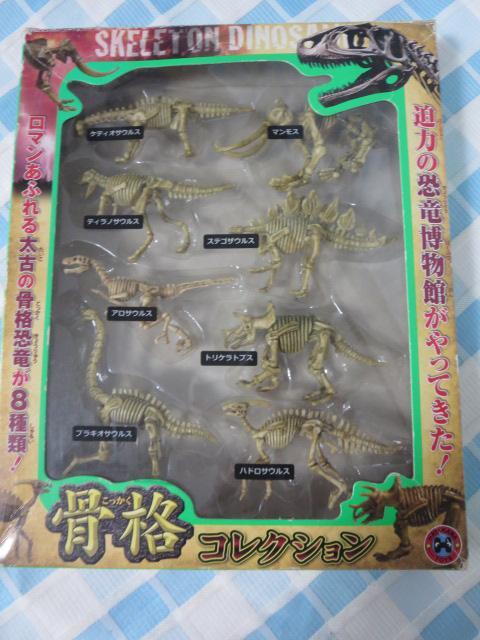 SKELETON DINOSA
迫力の恐竜博物館がやってきた！
ロマンあふれる太古の骨格恐竜が8種類！
ケティオサウルス
マンモス
ティラノサウルス
ステゴザウルス
アロサウルス
トリケラトプス
ブラキオサウルス
ハドロサウルス
こっかく
骨格
コレクション